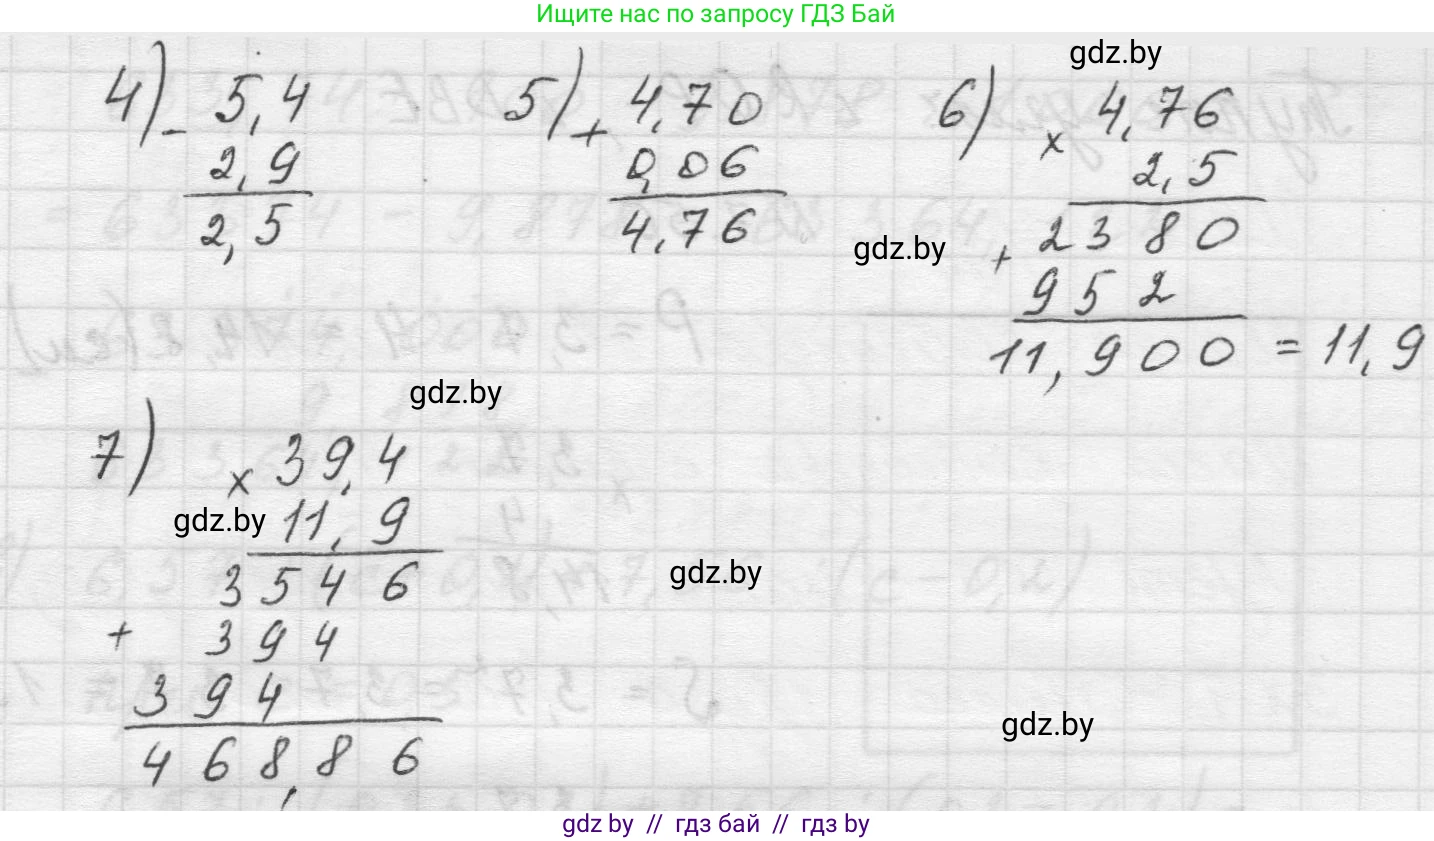 Ищите нас по запросу ГДЗ Бай
gdz.by
4) - 5,4
2,9
2,5
5) + 4,70
0,06
4,76
6) x 4,76
2,5
2380
+ 952
11,900 = 11,9
gdz.by
gdz.by
7) x 39,4
11,9
3546
+ 394
394
468,86
gdz.by
gdz.by
gdz.by
gdz by // гдз бай // гдз by